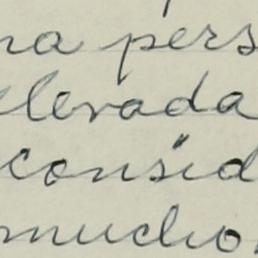 na pers
llevada
consid
mucho.